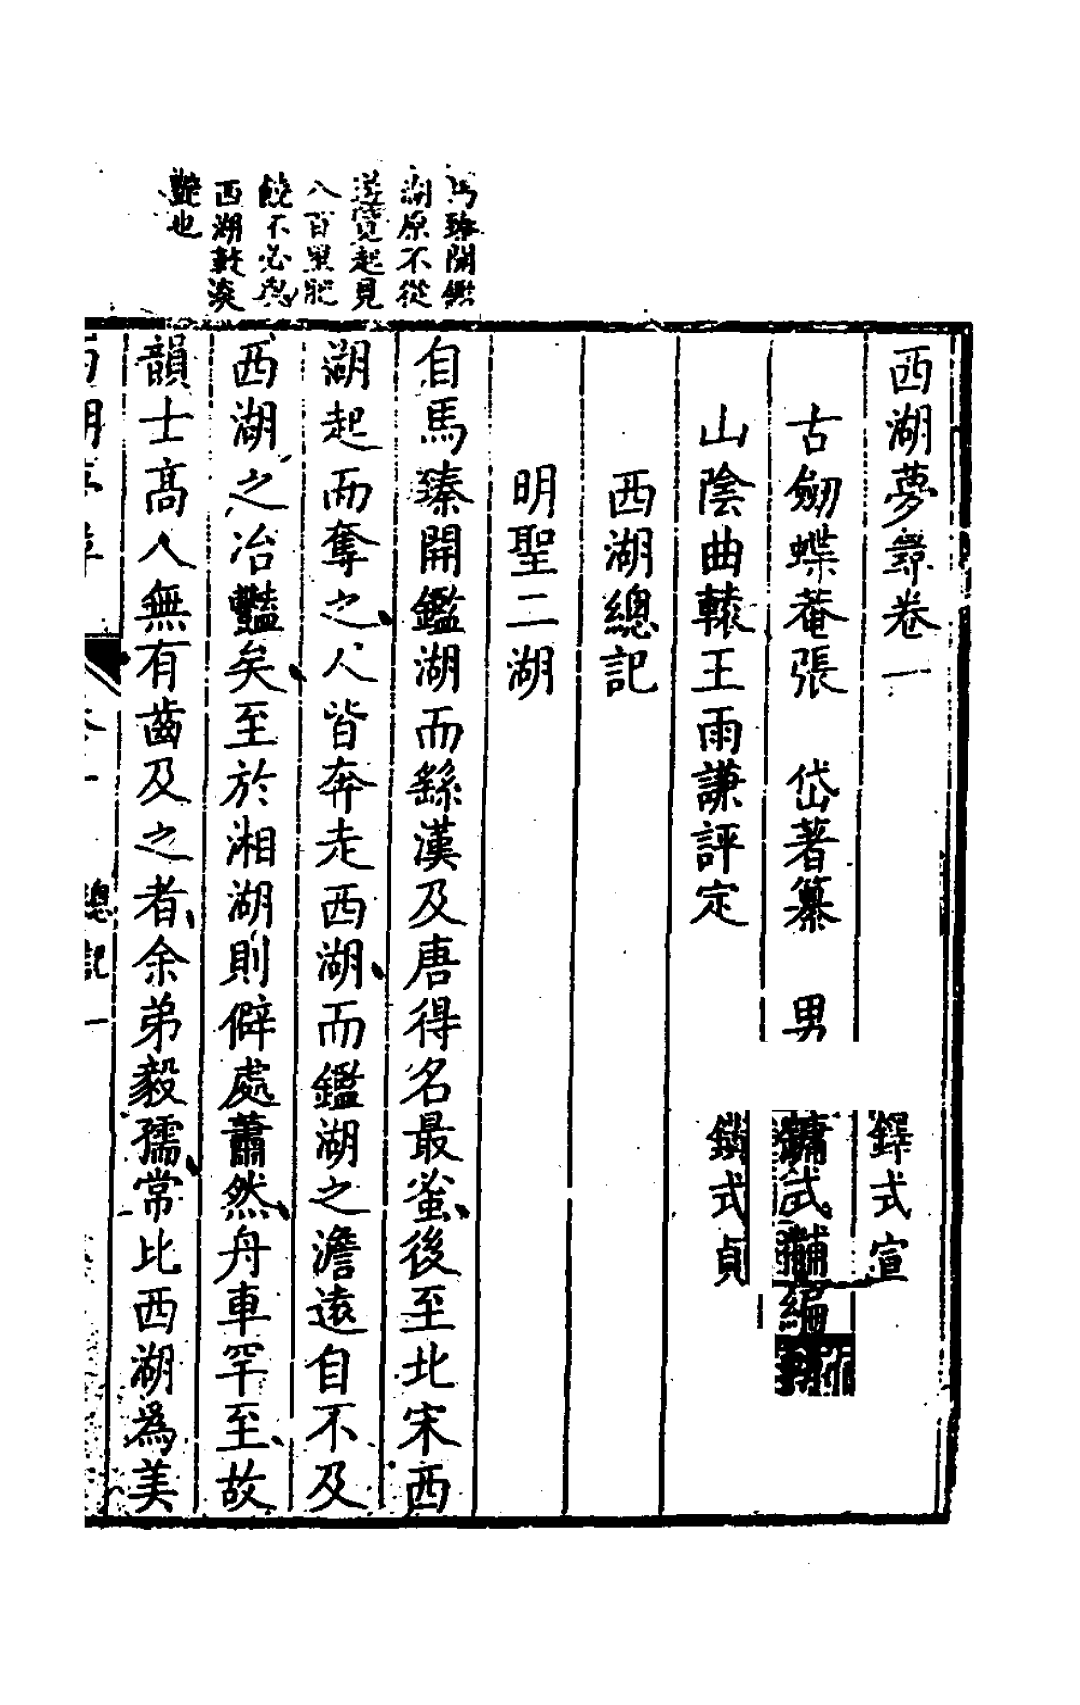 西湖夢尋卷一
古劒蝶菴張　岱著纂　男
鐸式宣
鏞式黼編
鎖式貞
山陰曲轅王雨謙評定
西湖總記
明聖二湖
馬臻開鑑
湖原不從
遊覽起見
八百里肥
饒不必
西湖
艷也
自馬臻開鑑湖而繇漢及唐得名最蚤後至北宋西
湖起而奪之人皆奔走西湖而鑑湖之澹遠自不及
西湖之冶豔矣至於湘湖則僻處蕭然舟車罕至故
韻士高人無有齒及之者余弟毅孺常比西湖為美
總記 一